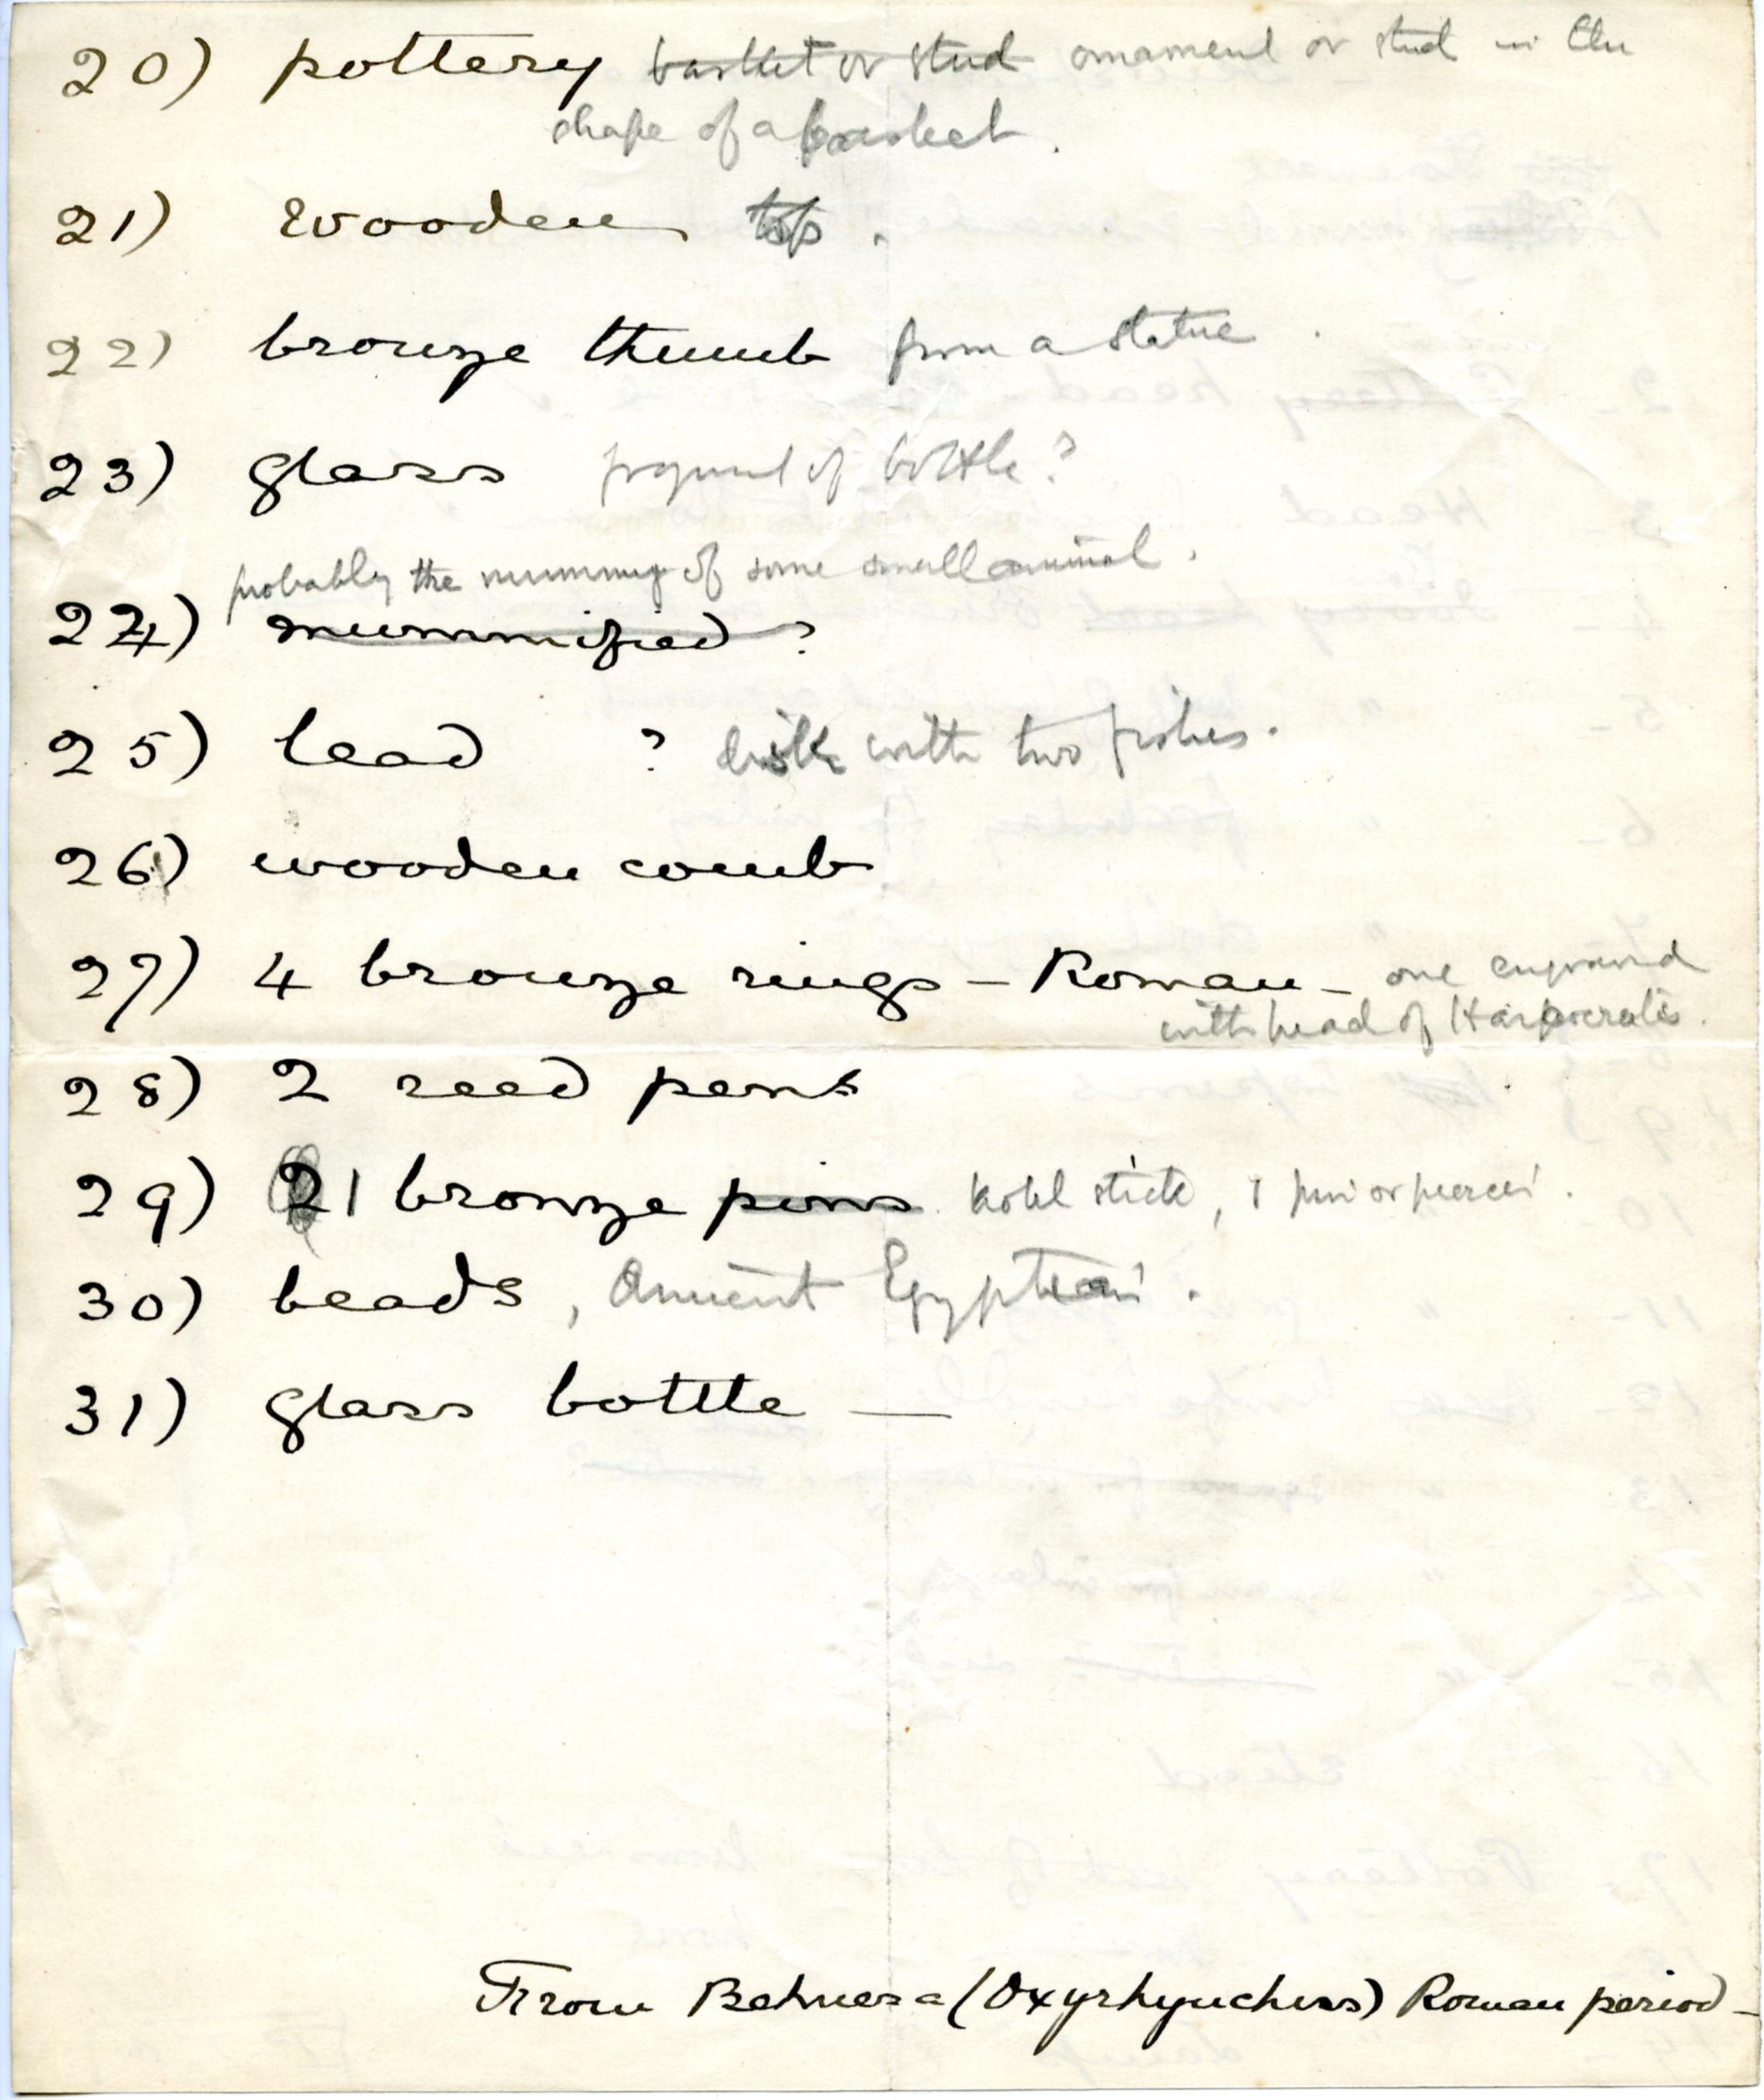 20) pottery basket or stud ornament or stud in the
shape of a basket.
21) wooden top.
22) bronze thumb from a statue.
23) glass fragment of bottle?
probably the mummy of some small animal.
24) mummified ?
25) lead ? disk with two fishes.
26) wooden comb
27) 4 bronze rings – Roman – one engraved
with head of Harpocrates.
28) 2 reed pens
29) 21 bronze pins kohl stick, 1 pin or piercer.
30) beads, Ancient Egyptian.
31) glass bottle —
From Behnesa (Oxyrhynchus) Roman period –